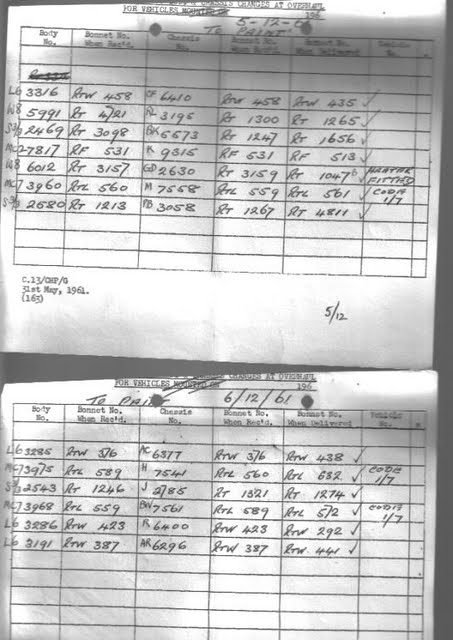 CHASSIS CHANGES AT OVERHAUL
FOR VEHICLES 196
5-12-61
TO PAINT
Body No. Bonnet No. When Rec'd. Chassis No. Bonnet No. When Rec'd. Bonnet No. When Delivered Vehicle No.
L6 3316 RTW 458 CF 6410 RTW 458 RTW 435 ✓
W8 5991 RT 4121 RL 3195 RT 1300 RT 1265 ✓
S-3/3 2469 RT 3098 BK 5573 RT 1247 RT 1656 ✓
MC2 7817 RF 531 K 9315 RF 531 RF 513 ✓
W8 6012 RT 3157 GD 2630 RT 3159 RT 1047 ✓ HEATER FITTED
MC7 3960 RTL 560 M 7558 RTL 559 RTL 561 ✓ CODE 1/7
S-3/3 2680 RT 1213 PB 3058 RT 1267 RT 4811 ✓
C.13/CHP/G
31st May, 1961.
(163)
5/12
CHANGES AT OVERHAUL
FOR VEHICLES 196
TO PAINT 6/12/61
Body No. Bonnet No. When Rec'd. Chassis No. Bonnet No. When Rec'd. Bonnet No. When Delivered Vehicle No.
L6 3285 RTW 316 AC 6377 RTW 316 RTW 438 ✓
MC7 3975 RTL 589 H 7541 RTL 560 RTL 632 ✓ CODE 1/7
S-3/3 2543 RT 1246 J 2185 RT 1321 RT 1274 ✓
MC7 3968 RTL 559 BW 7561 RTL 589 RTL 512 ✓ CODE 1/7
L6 3286 RTW 423 R 6400 RTW 423 RTW 292 ✓
L6 3191 RTW 387 AR 6296 RTW 387 RTW 441 ✓